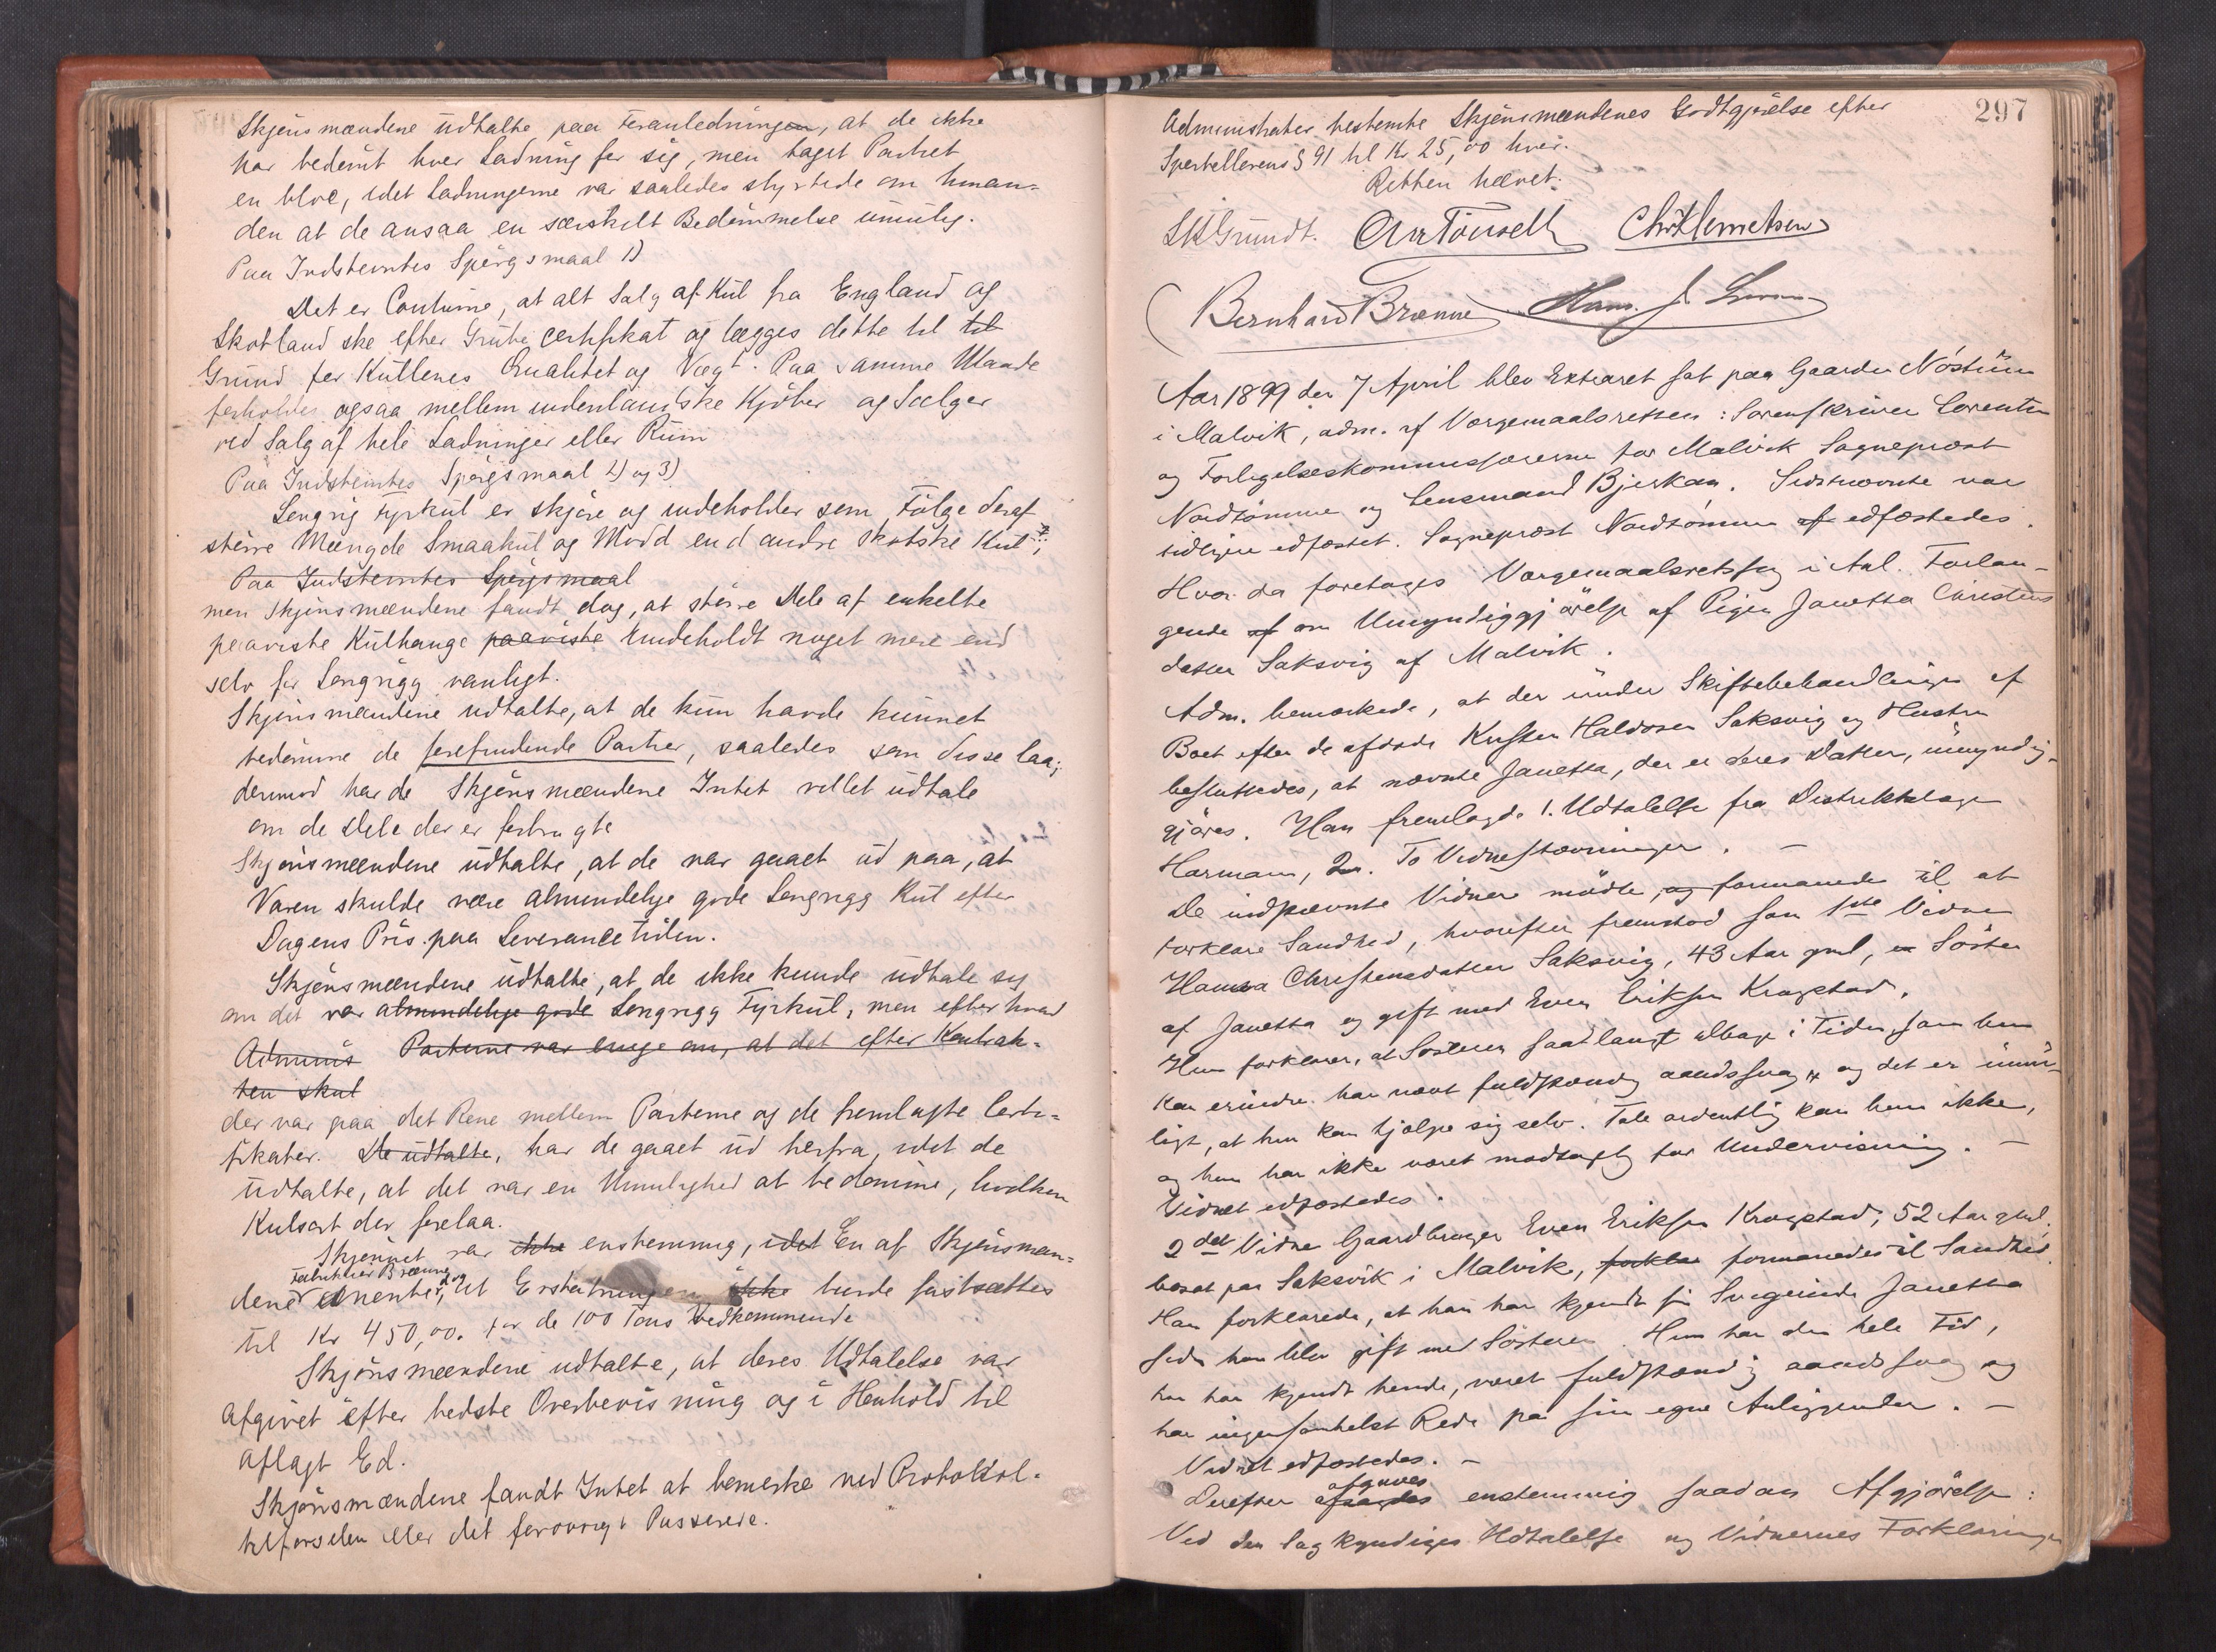 Skjönsmændene udtalte paa Foranledningen, at de ikke
har bedömt hver Ladning for sig, men taget Partiet
en bloc, idet Ladningerne var saaledes styrtede om hinan-
den at de ansaa en særskilt Bedömmelse umulig.
Paa Indstevntes Spörgsmaal 1)
Det er Coutume, at alt Salg af Kul fra England og
Skotland ske efter Grube certifikat og lægges dette til til
Grund for Kullenes Qualitet og Vægt. Paa samme Maade
forholdes ogsaa mellem indenlandske Kjöber og Sælger
ved Salg af hele Ladninger eller Rum
Paa Indstevntes Spörgsmaal 2) og 3)
Longrig Fyrkul er skjöre og indeholder som Fölge deraf
större Mængde Smaakul og Modd end andre skotske Kul,
Paa Indstevntes Spörgsmaal
men Skjönsmændene fandt dog, at större Dele af enkelte
paaviste Kulhauge paaviste indeholdt noget mere end
selv for Longrigg vanligt.
Skjönsmændene udtalte, at de kun havde kunnet
bedömme de forefindende Partier, saaledes som disse laa;
derimod havde Skjönsmændene Intet villet udtale
om de Dele der er forbrugte
Skjönsmændene udtalte, at de var gaaet ud paa, at
Varen skulde være almindelige gode Longrigg Kul efter
Dagens Pris paa Leverancetiden.
Skjönsmændene udtalte, at de ikke kunde udtale sig
om det var almindelige gode Longrigg Fyrkul, men efter hvad
Adminis Parterne var enige om, at det efter Kontrak-
ten skul
der var paa det Rene mellem Parterne og de fremlagte Certi-
fikater. De udtalte, har de gaaet ud herfra, idet de
udtalte, at det var en Umulighed at bedömme, hvilken
Kulsort der forelaa.
Skjönnet var ikke enstemmig, idet En af Skjönsmæn-
Fabrikkeier Brænne dog
dene mente, at Erstatningen ikke burde fastsættes
til Kr 450,00. for de 100 Tons Vedkommende
Skjönsmændene udtalte, at deres Udtalelse var
Afgivet efter bedste Overbevisning og i Henhold til
aflagt Ed.
Skjönsmændene fandt Intet at bemerke ved Protokol-
tilförselen eller det forövrigt Passerede.
297
Administrator bestemte Skjönsmændenes Godtgjörelse efter
Sportellovens § 91 til Kr 25,00 hver.
Retten hævet.
Grundt. Chr Klemetsen
Bernhard Brænne Hans J.
Aar 1899 den 7 April blev Extraret sat paa Gaarden Nöstum
i Malvik, adm. af Værgemaalsretten: Sorenskriver Lorentzen
og Forligelseskommissærerne for Malvik Sogneprost
Nordtömme og Lensmand Bjerkan. Sidstnævnte var
tidligere edfæstet. Sogneprost Nordtömme af edfæstedes.
Hvor da foretoges Værgemaalsretssag i Anl. Forlan-
gende af om Umyndiggjörelse af Pigen Janetta Christens
datter Saksvig af Malvik.
Adm. bemærkede, at der under Skiftebehandlingen af
Boet efter de afdöde Kristen Haldosen Saksvig og Hustru
besluttedes, at nævnte Janetta, der er deres Datter, umyndig-
gjöres. Han fremlagde 1. Udtalelse fra Distriktslæge
Harmann, 2. To Vidnestævninger. –
De indstævnte Vidner mödte og formanede til at
forklare Sandhed, hvorefter fremstod som 1ste Vidne
Hanna Christensdatter Saksvig, 43 Aar gml, er Söster
af Janetta og gift med Even Eriksen Krogstad.
Hun forklarer, at Sösteren saa langt tilbage i Tiden, som hun
kan erindre har været fuldstændig aandssvag og det er umu-
ligt, at hun kan hjælpe sig selv. Tale ordentlig kan hun ikke,
og hun har ikke været modtagelig for Undervisning. –
Vidnet edfæstedes.
2det Vidne Gaardbruger Even Eriksen Krogstad, 52 Aar gml.
bosat paa Saksvik i Malvik, forklar formanedes til Sandhed
Han forklarede, at han har kjendt sin Svigerinde Janetta
siden han blev gift med Sösteren. Hun har den hele Tid,
han har kjendt hende, været fuldstændig aandssvag og
har ingensomhelst Rede paa sine egne Anliggender. –
Vidnet edfæstedes. –
afgaves
Derefter afsagdes enstemmig saadan Afgjörelse:
Ved den lægkyndiges Udtalelse og Vidnernes Forklaringer